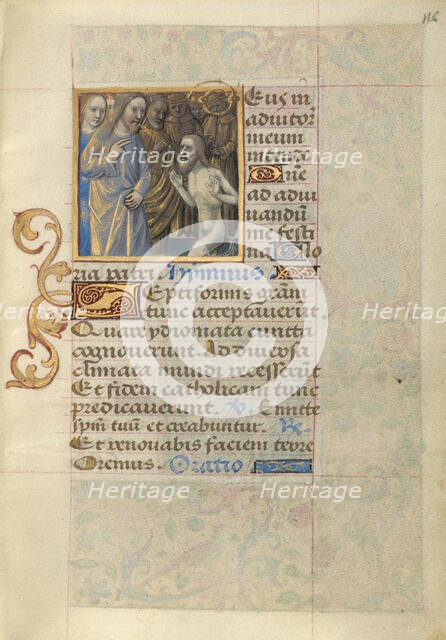 116
Deus in
adiutor
meum
Dne
ad adiu
uandu
me festi
na Glo
ria patri Hymnus
Septiformis gram
tunc acceptaverut
Quare ydiomata cuncta
cognoverunt. Ad diversa
climata mundi recesserut
Et fidem catholicam tunc
predicaverunt. V. Emitte
spm tuu et creabuntur. R.
Et renovabis faciem terre
Oremus. Oratio
Heritage
Heritage
Heritage
Heritage
Heritage
Heritage
Heritage
Heritage